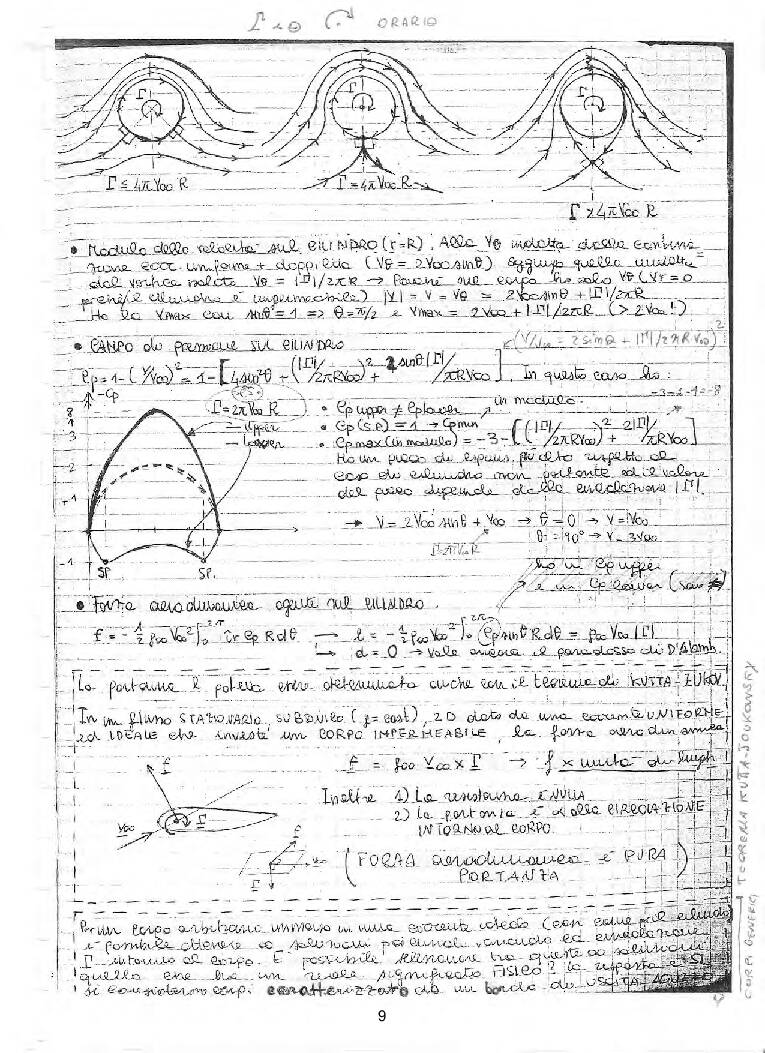 Γ<0 ORARIO
Γ ≤ 4πV∞R
Γ = 4πV∞R
Γ > 4πV∞R
• Modulo della velocità sul CILINDRO (r=R). Alla Vθ indotta dalla combina-
zione corr. uniforme + doppietta (Vθ = 2V∞sinθ) aggiungo quella indotta
dal vortice isolato Vθ = |Γ|/2πR → Poiché sul corpo ho solo Vθ (Vr = 0
perché il cilindro è impermeabile) |V| = V = Vθ = 2V∞sinθ + |Γ|/2πR
Ho la Vmax con sinθ = 1 => θ = π/2 e Vmax = 2V∞ + |Γ|/2πR (> 2V∞!)
• CAMPO di pressione SUL CILINDRO
(V/V∞ = 2sinθ + |Γ|/2πRV∞)²
Cp = 1-(V/V∞)² = 1-[4sin²θ + (|Γ|/2πRV∞)² + 2sinθ|Γ|/πRV∞]. In questo caso ho:
-Cp
8
3
2
+1
-1
SP
SP.
Γ = 2πV∞R
— upper
— lower
-3-1-4 = -8
• Cp upper ≠ Cp lower
in modulo.
• Cp (S.P.) = 1 → Cpmin
• Cpmax (in modulo) = -3-[(|Γ|/2πRV∞)² + 2|Γ|/πRV∞]
Ho un picco di espans. più alto rispetto al
caso di cilindro non portante ed il valore
del picco dipende dalla circolazione |Γ|.
→ V = 2V∞ sinθ + V∞ → θ = 0 → V = V∞
θ = 90° → V = 3V∞
ho un Cp upper
e un Cp lower
• Forza aerodinamica agente sul CILINDRO.
f = -½ρ∞V∞²∫₀²π îr Cp R dθ → l = -½ρ∞V∞²∫₀²π Cp sinθ R dθ = ρ∞V∞|Γ|
d = 0 → Vale ancora il paradosso di D'Alamb.
La portanza l poteva essere determinata anche con il teorema di KUTTA-ZUKOV.
In un flusso STAZIONARIO, SUBSONICO (ρ=cost), 2D dato da una corrente UNIFORME
ed IDEALE che investe un CORPO IMPERMEABILE, la forza aerodinamica
f = ρ∞ V∞ × Γ → f × unità di lungh
f
V∞
Γ
Inoltre 1) La resistenza È NULLA
2) la portanza è alla CIRCOLAZIONE
INTORNO AL CORPO
f
V∞
Γ
(FORZA aerodinamica è PURA
PORTANZA)
TEOREMA KUTTA-JOUKOWSKY
CORPI GENERICI
Per un corpo arbitrario immerso in una corrente ideale (così come per il cilindro)
è possibile ottenere ∞ soluzioni variando la circolazione
Γ intorno al corpo. È possibile selezionare tra queste ∞ soluzioni
quella che ha un reale significato FISICO? la risposta è SI
si consideriamo corpi caratterizzato da un bordo di USCITA AGUZZO
9